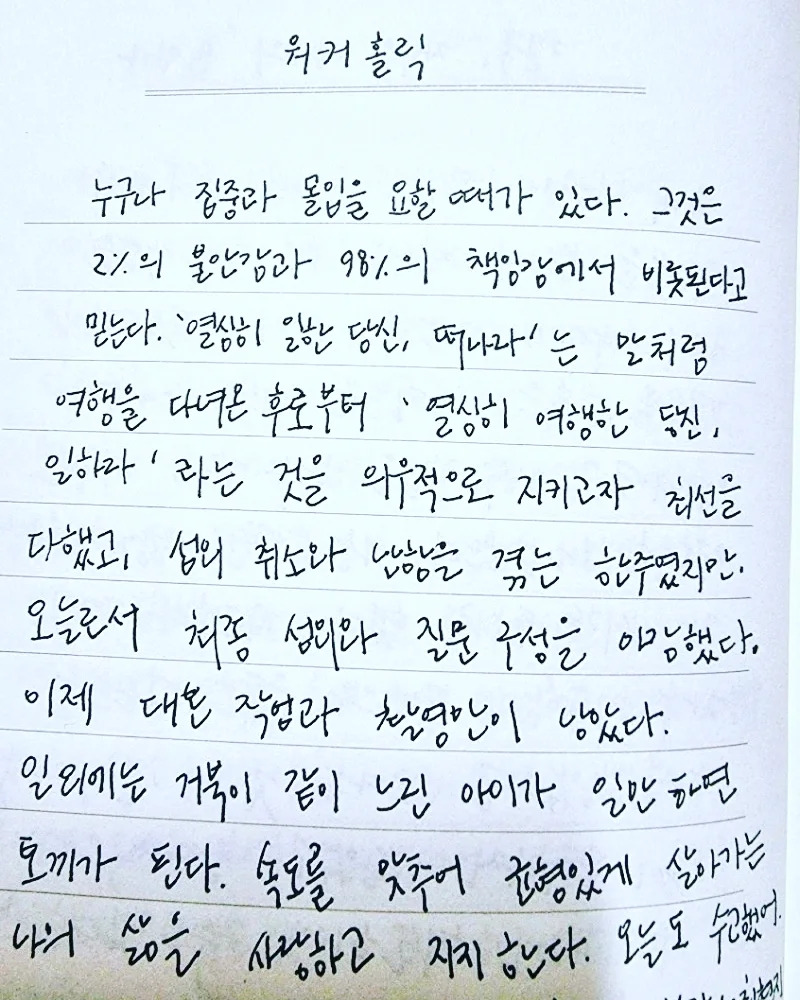 워커홀릭
누구나 집중과 몰입을 요할 때가 있다. 그것은
2%의 불안감과 98%의 책임감에서 비롯된다고
믿는다. '열심히 일한 당신, 떠나라'는 말처럼
여행을 다녀온 후로부터 '열심히 여행한 당신,
일하라' 라는 것을 의무적으로 지키고자 최선을
다했고, 섭외 취소와 난항을 겪는 한주였지만,
오늘로서 최종 섭외와 질문 구성을 마감했다.
이제 대본 작업과 촬영만이 남았다.
일 외에는 거북이 같이 느린 아이가 일만 하면
토끼가 된다. 속도를 맞추어 균형있게 살아가는
나의 삶을 사랑하고 지지한다. 오늘도 수고했어.